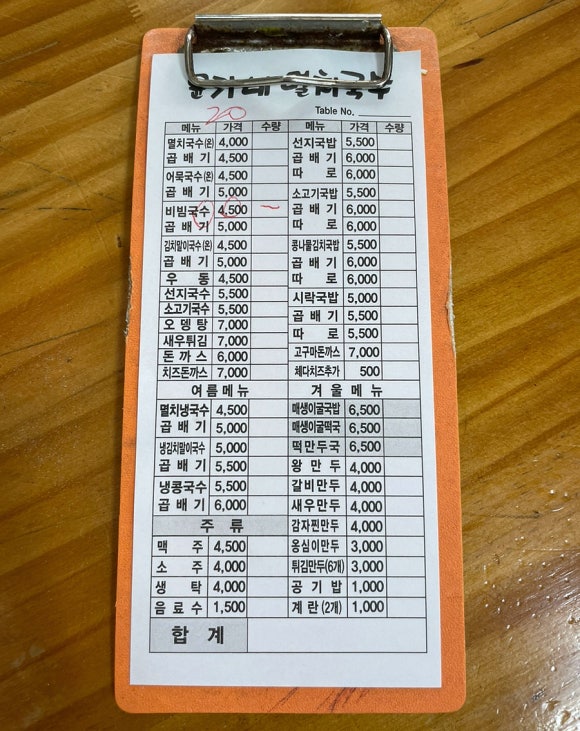 멸치국수
20
Table No.
메뉴 가격 수량 메뉴 가격 수량
멸치국수(온) 4,000 선지국밥 5,500
곱배기 4,500 곱배기 6,000
어묵국수(온) 4,500 따로 6,000
곱배기 5,000 소고기국밥 5,500
비빔국수 4,500 곱배기 6,000
곱배기 5,000 따로 6,000
김치말이국수(온) 4,500 콩나물김치국밥 5,500
곱배기 5,000 곱배기 6,000
우동 4,500 따로 6,000
선지국수 5,500 시락국밥 5,000
소고기국수 5,500 곱배기 5,500
오뎅탕 7,000 따로 5,500
새우튀김 7,000 고구마돈까스 7,000
돈까스 6,000 체다치즈추가 500
치즈돈까스 7,000
여름메뉴 겨울메뉴
멸치냉국수 4,500 매생이굴국밥 6,500
곱배기 5,000 매생이굴떡국 6,500
냉김치말이국수 5,000 떡만두국 6,500
곱배기 5,500 왕만두 4,000
냉콩국수 5,500 갈비만두 4,000
곱배기 6,000 새우만두 4,000
주류 감자찐만두 4,000
맥주 4,500 옹심이만두 3,000
소주 4,000 튀김만두(6개) 3,000
생탁 4,000 공기밥 1,000
음료수 1,500 계란(2개) 1,000
합계